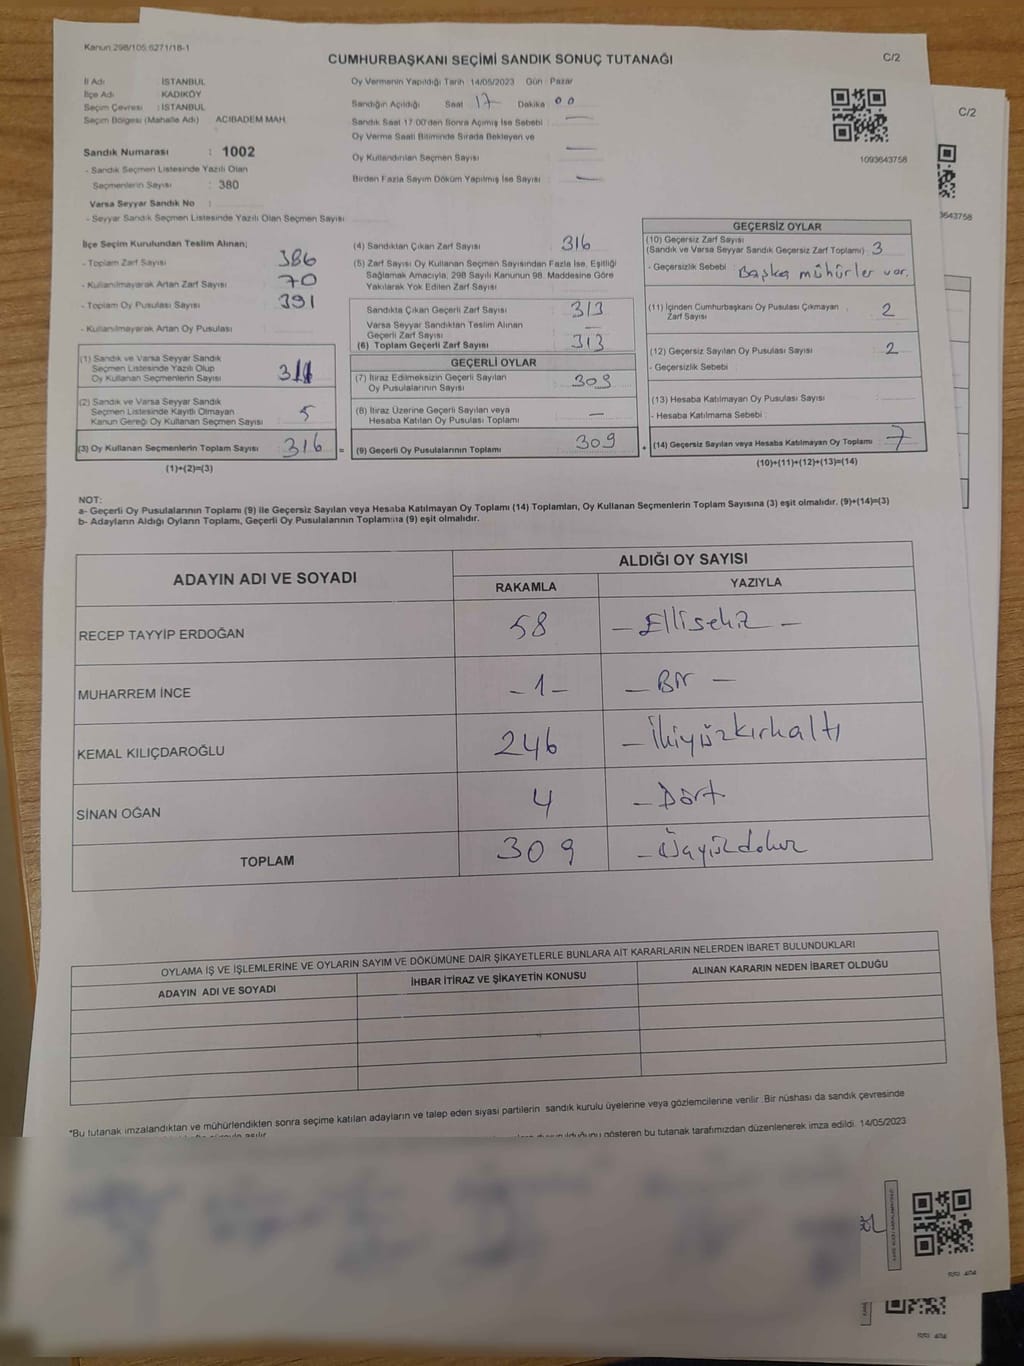 Kanun 298/105,6271/18-1
CUMHURBAŞKANI SEÇİMİ SANDIK SONUÇ TUTANAĞI
C/2
İl Adı : İSTANBUL
İlçe Adı : KADIKÖY
Seçim Çevresi : İSTANBUL
Seçim Bölgesi (Mahalle Adı) ACIBADEM MAH.
Sandık Numarası : 1002
- Sandık Seçmen Listesinde Yazılı Olan
Seçmenlerin Sayısı : 380
Varsa Seyyar Sandık No :
- Seyyar Sandık Seçmen Listesinde Yazılı Olan Seçmen Sayısı
Oy Vermenin Yapıldığı Tarih 14/05/2023 Gün : Pazar
Sandığın Açıldığı Saat 17 Dakika 00
Sandık Saat 17:00'den Sonra Açılmış İse Sebebi : —
Oy Verme Saati Bitiminde Sırada Bekleyen ve
Oy Kullandırılan Seçmen Sayısı —
Birden Fazla Sayım Döküm Yapılmış İse Sayısı : —
1093643758
C/2
3643758
İlçe Seçim Kurulundan Teslim Alınan;
- Toplam Zarf Sayısı 386
- Kullanılmayarak Artan Zarf Sayısı 70
- Toplam Oy Pusulası Sayısı 391
- Kullanılmayarak Artan Oy Pusulası
(1) Sandık ve Varsa Seyyar Sandık
Seçmen Listesinde Yazılı Olup
Oy Kullanan Seçmenlerin Sayısı
(2) Sandık ve Varsa Seyyar Sandık
Seçmen Listesinde Kayıtlı Olmayan
Kanun Gereği Oy Kullanan Seçmen Sayısı 5
(3) Oy Kullanan Seçmenlerin Toplam Sayısı 316 =
(1)+(2)=(3)
(4) Sandıktan Çıkan Zarf Sayısı 316
(5) Zarf Sayısı Oy Kullanan Seçmen Sayısından Fazla İse, Eşitliği
Sağlamak Amacıyla, 298 Sayılı Kanunun 98. Maddesine Göre
Yakılarak Yok Edilen Zarf Sayısı :
Sandıkta Çıkan Geçerli Zarf Sayısı 313
Varsa Seyyar Sandıktan Teslim Alınan
Geçerli Zarf Sayısı —
(6) Toplam Geçerli Zarf Sayısı 313
GEÇERLİ OYLAR
(7) İtiraz Edilmeksizin Geçerli Sayılan
Oy Pusulalarının Sayısı 309
(8) İtiraz Üzerine Geçerli Sayılan veya
Hesaba Katılan Oy Pusulası Toplamı —
(9) Geçerli Oy Pusulalarının Toplamı 309 +
GEÇERSİZ OYLAR
(10) Geçersiz Zarf Sayısı
(Sandık ve Varsa Seyyar Sandık Geçersiz Zarf Toplamı) 3
- Geçersizlik Sebebi : Başka mühürler var.
(11) İçinden Cumhurbaşkanı Oy Pusulası Çıkmayan
Zarf Sayısı 2
(12) Geçersiz Sayılan Oy Pusulası Sayısı 2
- Geçersizlik Sebebi :
(13) Hesaba Katılmayan Oy Pusulası Sayısı
- Hesaba Katılmama Sebebi :
(14) Geçersiz Sayılan veya Hesaba Katılmayan Oy Toplamı 7
(10)+(11)+(12)+(13)=(14)
NOT:
a- Geçerli Oy Pusulalarının Toplamı (9) ile Geçersiz Sayılan veya Hesaba Katılmayan Oy Toplamı (14) Toplamları, Oy Kullanan Seçmenlerin Toplam Sayısına (3) eşit olmalıdır. (9)+(14)=(3)
b- Adayların Aldığı Oyların Toplamı, Geçerli Oy Pusulalarının Toplamına (9) eşit olmalıdır.
ADAYIN ADI VE SOYADI
ALDIĞI OY SAYISI
RAKAMLA
YAZIYLA
RECEP TAYYİP ERDOĞAN 58 – Ellisekiz –
MUHARREM İNCE – 1 – – Bir –
KEMAL KILIÇDAROĞLU 246 – İkiyüzkırkaltı
SİNAN OĞAN 4 – Dört
TOPLAM 309 – Üçyüzdokuz
OYLAMA İŞ VE İŞLEMLERİNE VE OYLARIN SAYIM VE DÖKÜMÜNE DAİR ŞİKAYETLERLE BUNLARA AİT KARARLARIN NELERDEN İBARET BULUNDUKLARI
ADAYIN ADI VE SOYADI
İHBAR İTİRAZ VE ŞİKAYETİN KONUSU
ALINAN KARARIN NEDEN İBARET OLDUĞU
*Bu tutanak imzalandıktan ve mühürlendikten sonra seçime katılan adayların ve talep eden siyasi partilerin sandık kurulu üyelerine veya gözlemcilerine verilir. Bir nüshası da sandık çevresinde
gösteren bu tutanak tarafımızdan düzenlenerek imza edildi. 14/05/2023